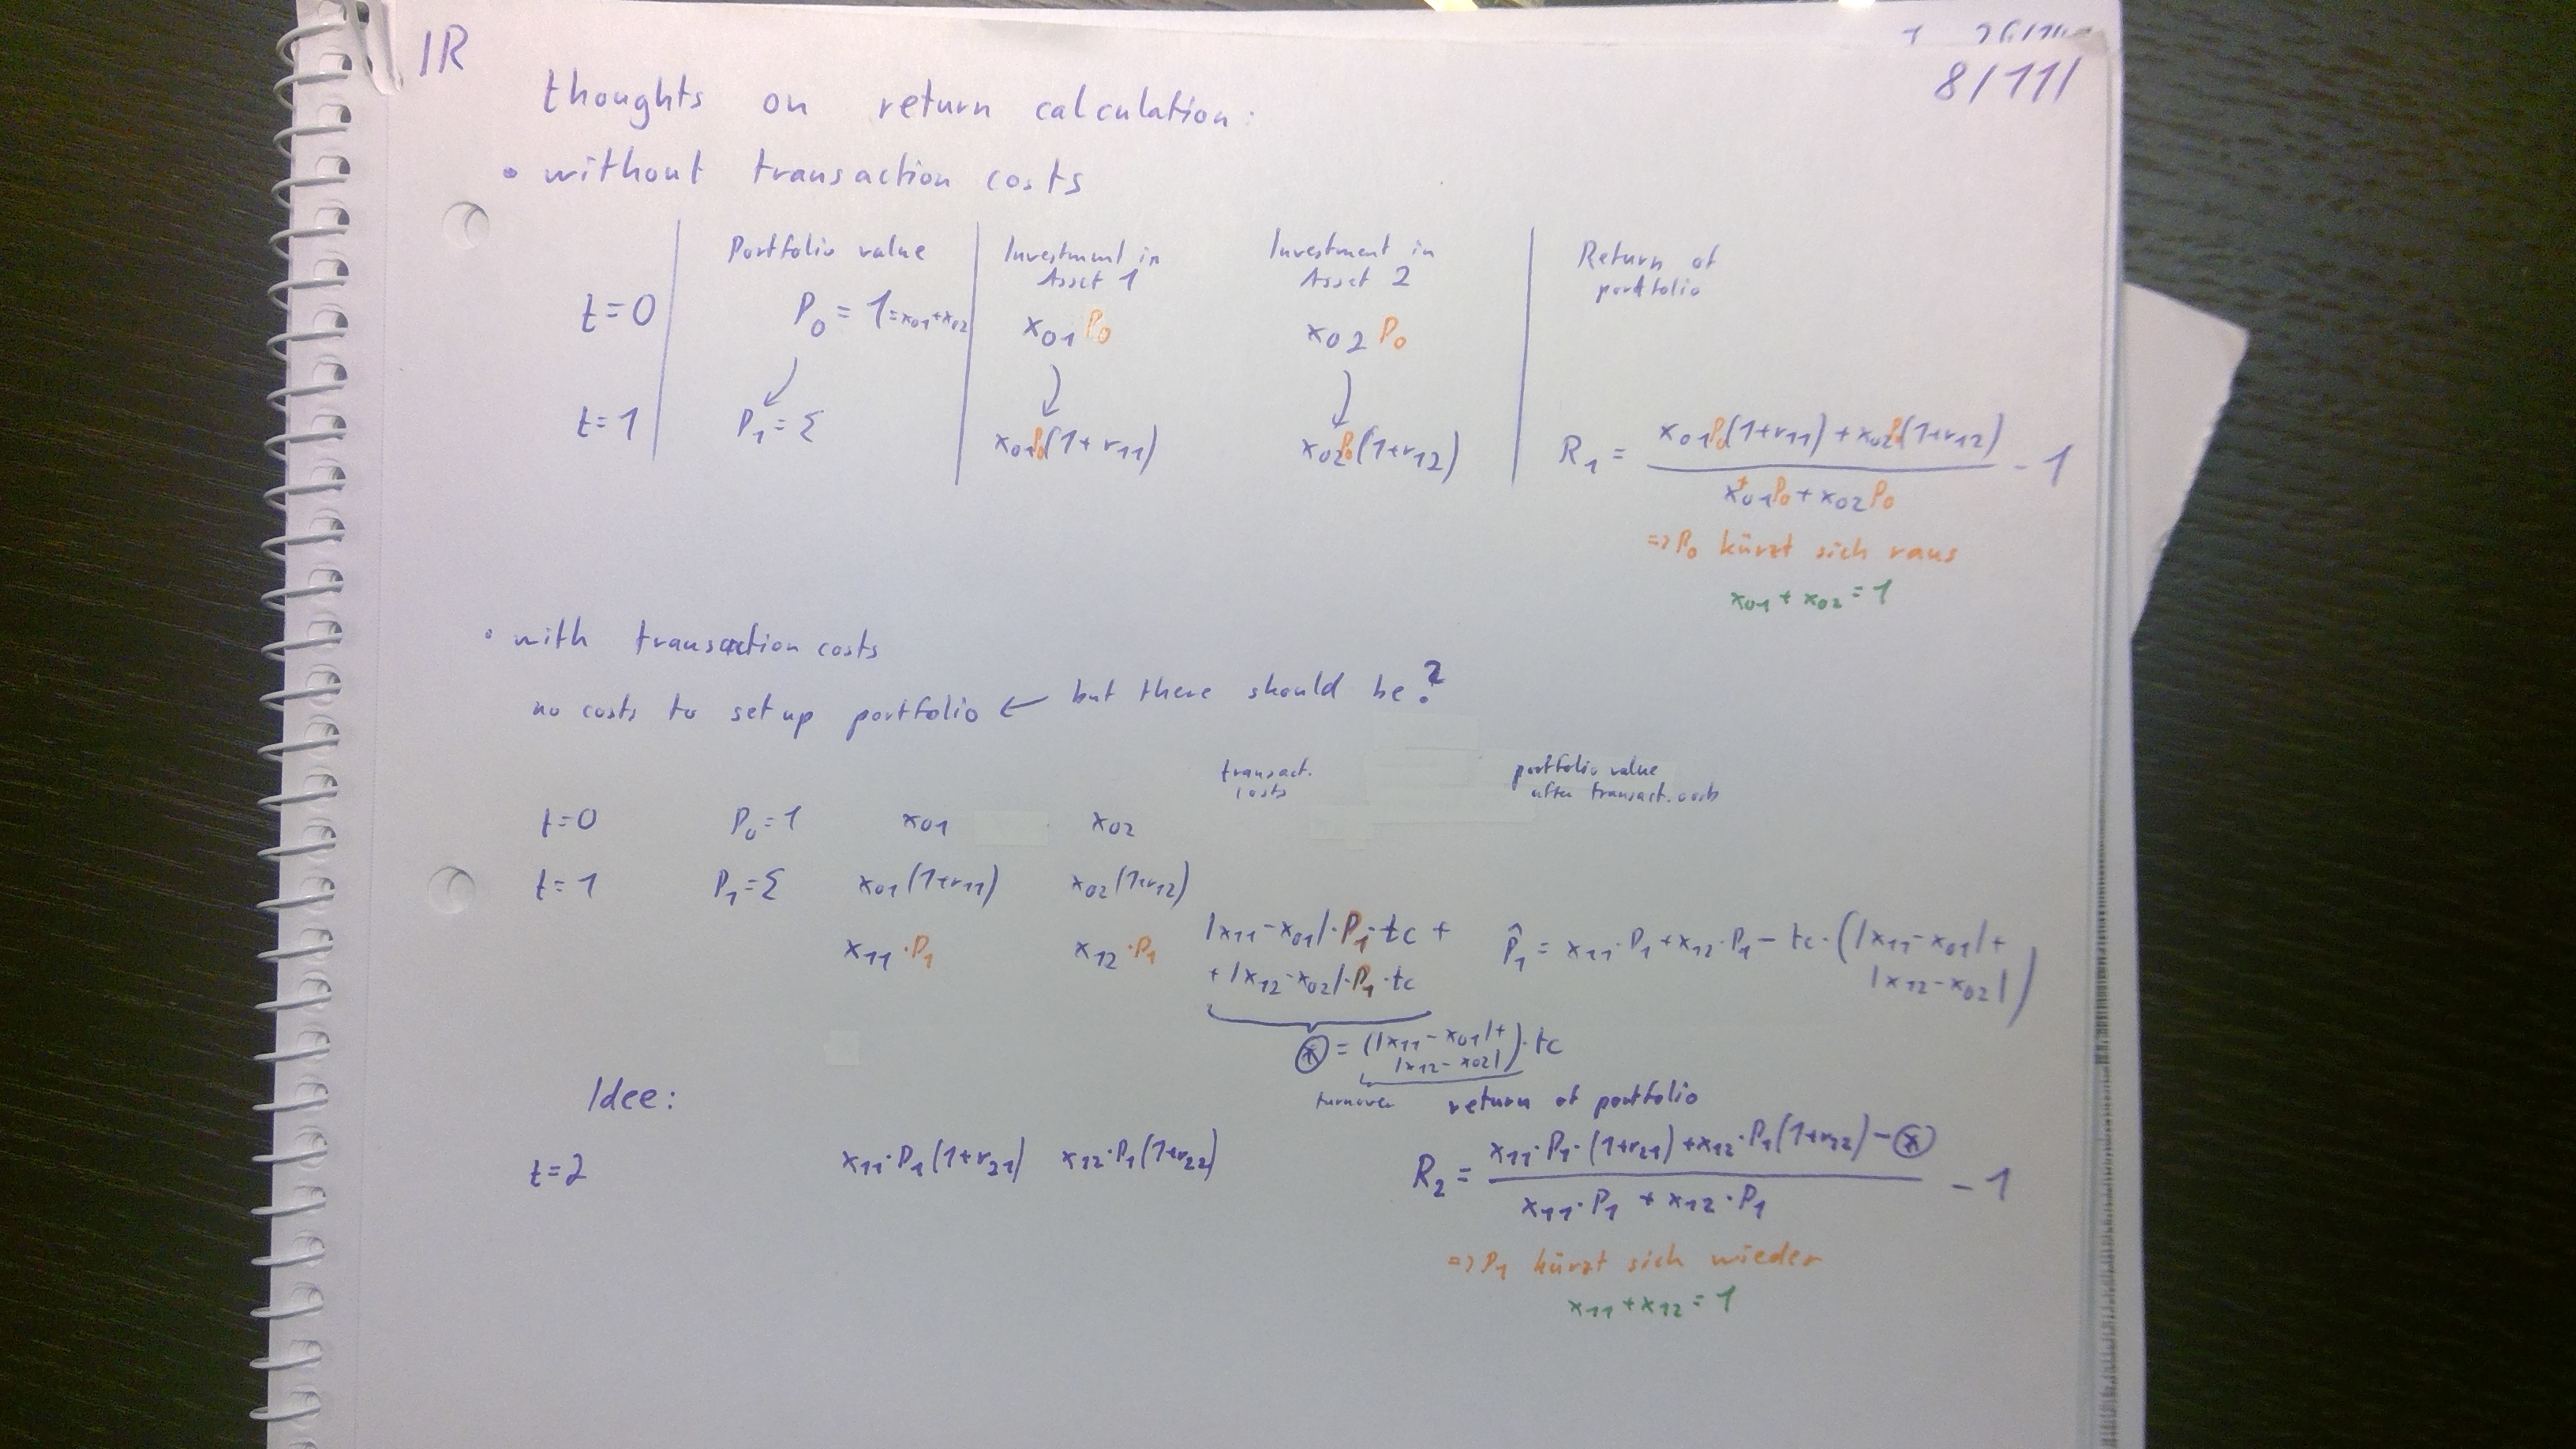 1R
8/11/
thoughts on return calculation:
• without transaction costs
Portfolio value Investment in Asset 1 Investment in Asset 2 Return of portfolio
t=0 P₀ = 1 = x₀₁+x₀₂ x₀₁P₀ x₀₂P₀
t=1 P₁ = Σ x₀₁P₀(1+r₁₁) x₀₂P₀(1+r₁₂) R₁ = (x₀₁P₀(1+r₁₁) + x₀₂P₀(1+r₁₂)) / (x₀₁P₀ + x₀₂P₀) - 1
=> P₀ kürzt sich raus
x₀₁ + x₀₂ = 1
• with transaction costs
no costs to set up portfolio ← but there should be?
transact. costs portfolio value after transact. costs
t=0 P₀=1 x₀₁ x₀₂
t=1 P₁=Σ x₀₁(1+r₁₁) x₀₂(1+r₁₂)
x₁₁·P₁ x₁₂·P₁ |x₁₁-x₀₁|·P₁·tc + P̂₁ = x₁₁·P₁+x₁₂·P₁ - tc·(|x₁₁-x₀₁|+
+|x₁₂-x₀₂|·P₁·tc |x₁₂-x₀₂|)
ⓧ = (|x₁₁-x₀₁|+
|x₁₂-x₀₂|)·tc
turnover
Idee:
return of portfolio
t=2 x₁₁·P₁(1+r₂₁) x₁₂·P₁(1+r₂₂) R₂ = (x₁₁·P₁·(1+r₂₁)+x₁₂·P₁(1+r₂₂) - ⓧ) / (x₁₁·P₁ + x₁₂·P₁) - 1
=> P₁ kürzt sich wieder
x₁₁+x₁₂ = 1